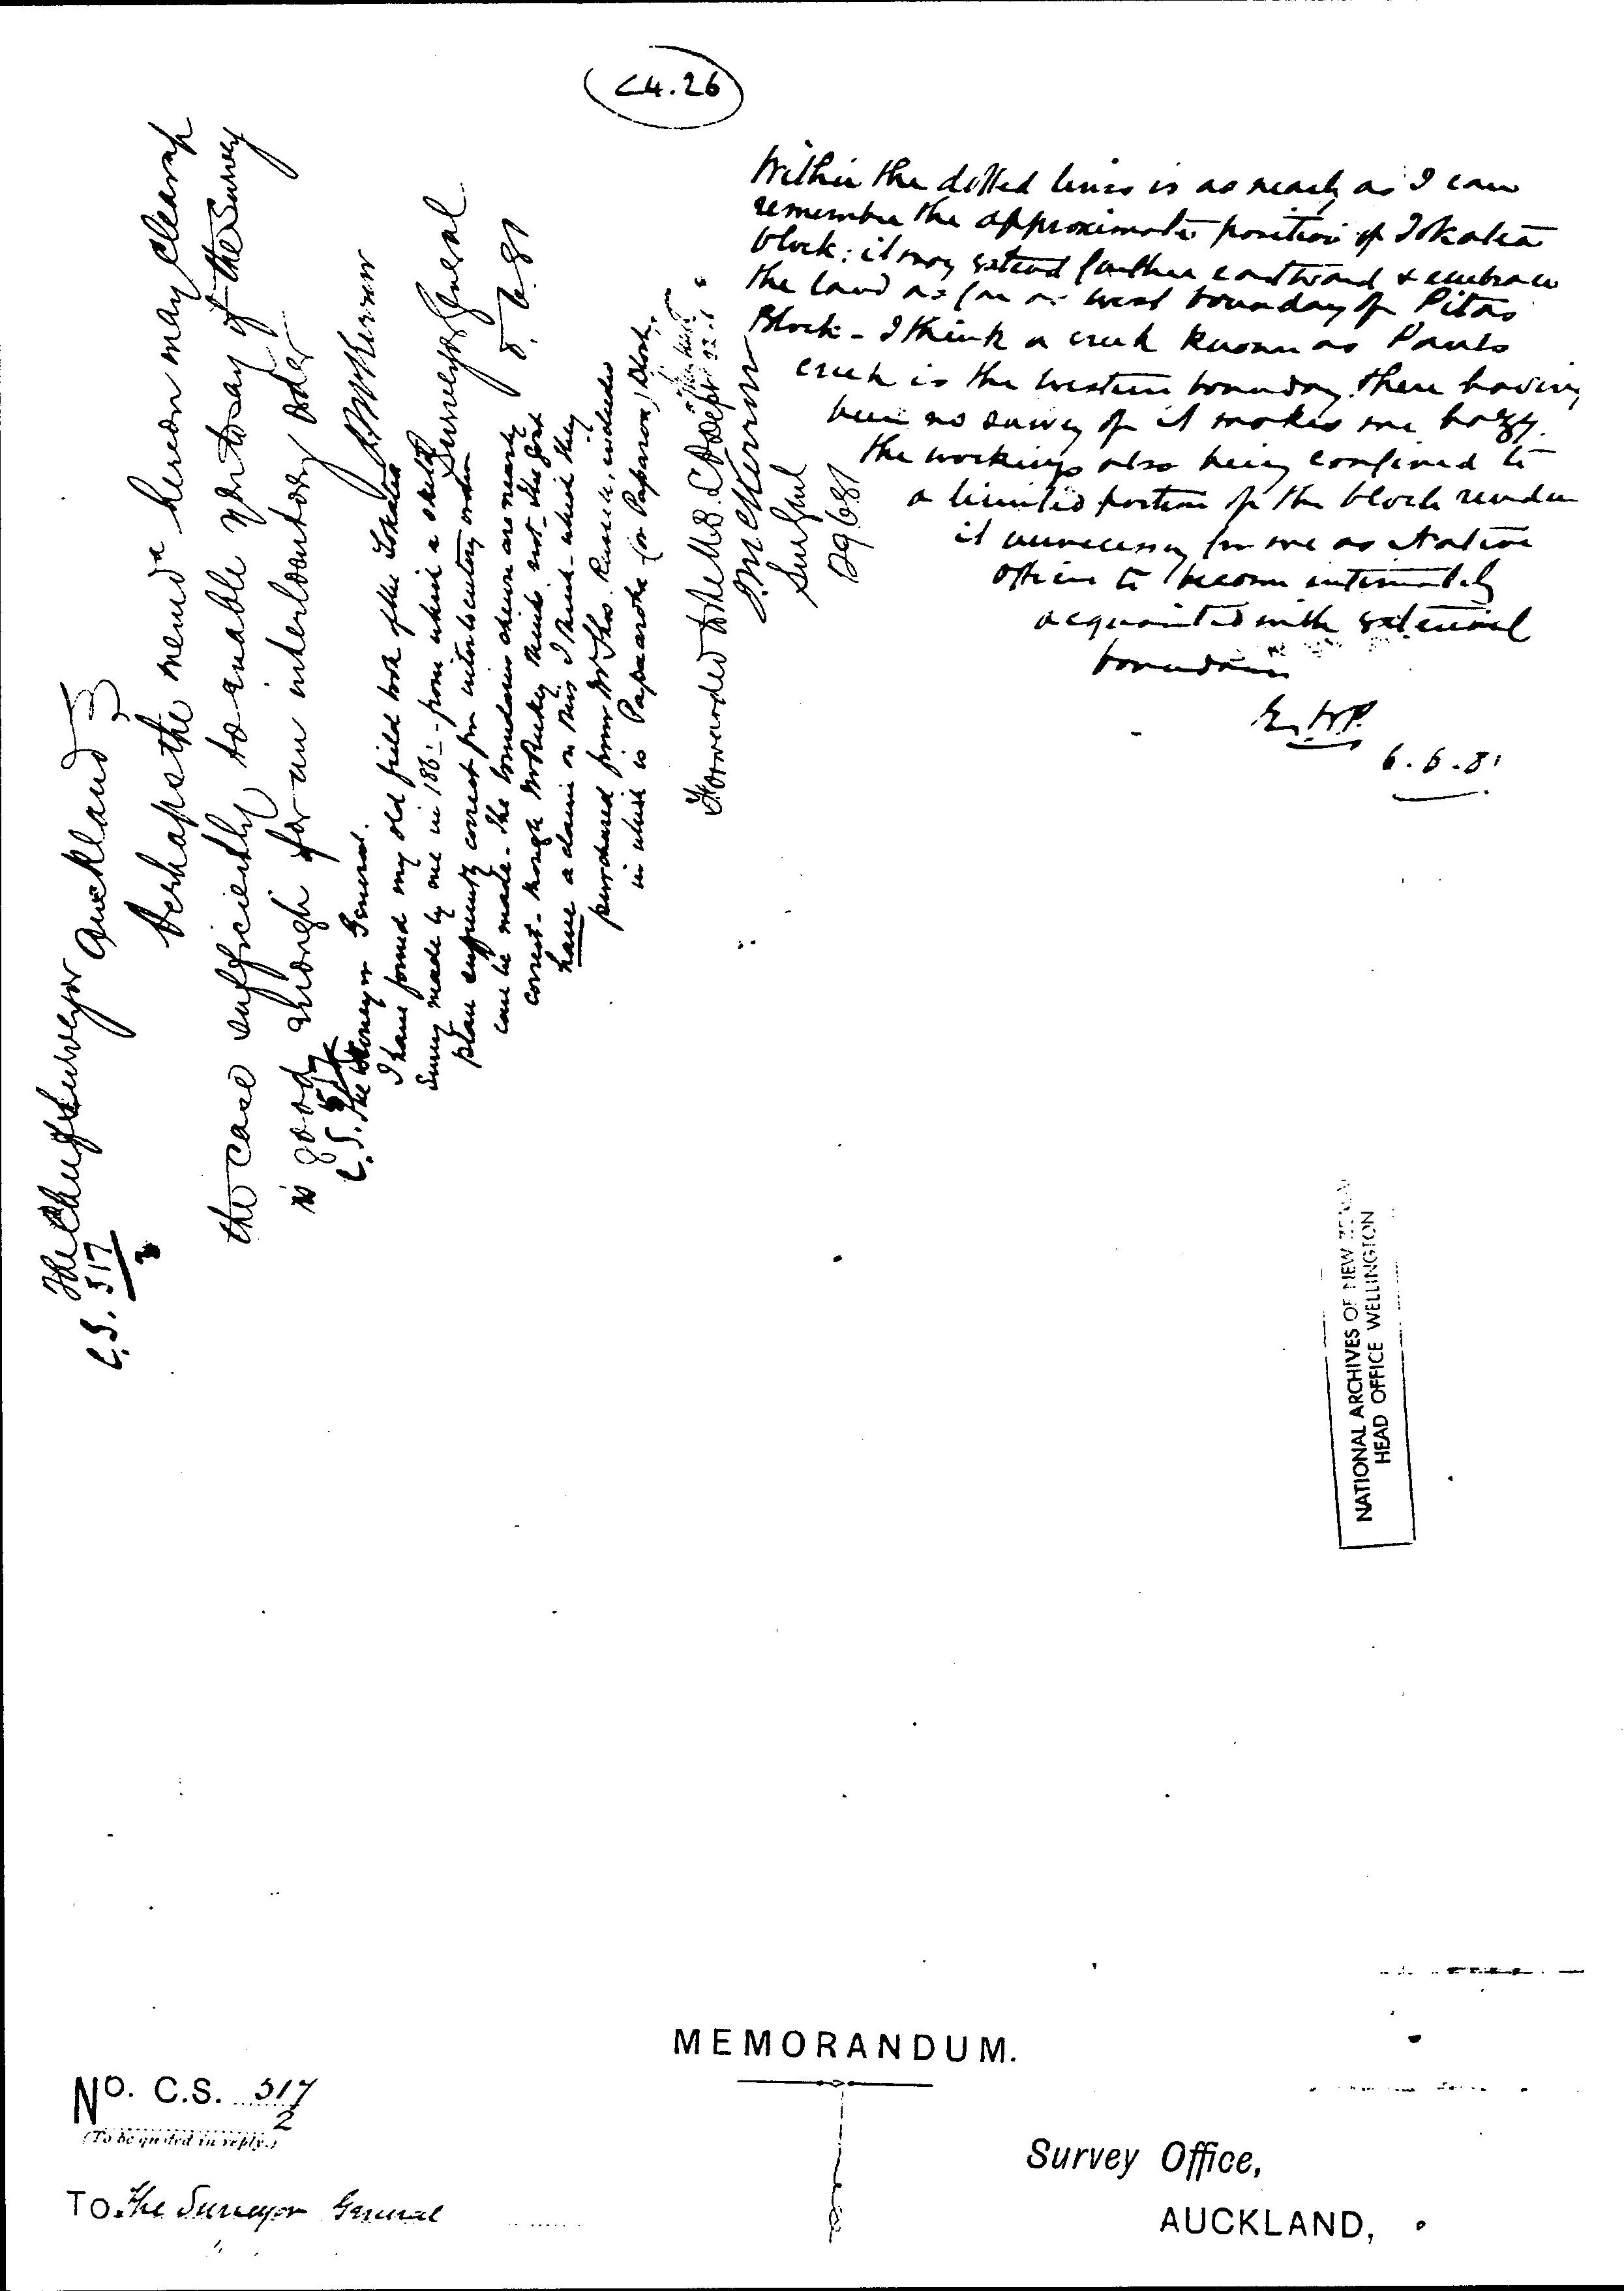 C4.26
Within the dotted lines is as nearly as I can
remember the approximate position of Tokatea
block: it may extend further eastward & embrace
the land as far as west boundary of Pitas
Block - I think a creek known as Pauls
creek is the western boundary. There having
been no survey of it makes me hazy.
the workings also being confined to
a limited portion of the block renders
it unnecessary for me as Native
officer to become intimately
acquainted with external
boundaries
6.6.81
The Chief Surveyor Auckland
C.S. 517
3
Perhaps the memda hereon may clear up
the case sufficiently to enable you to say if the Survey
is good enough for an interlocutory order
J McKerrow
Surveyor General
8.6.81
C.S. 517
The Surveyor General.
I have found my old field book of the Tokatea
Survey made by me in 186 - from which a sketch
plan sufficiently correct for interlocutory order
can be made - The boundaries shewn are nearly
correct - though McPuckey thinks not - the Govt
have a claim on this I think - which they
purchased from Mr Thos. Russell, includes
in which is Paparoa) Block.
Forwarded to the
J. McKerrow
Sur Genl
29 6 81
NATIONAL ARCHIVES OF NEW ZEALAND
HEAD OFFICE WELLINGTON
MEMORANDUM.
No. C.S. 517
2
(To be quoted in reply.)
Survey Office,
AUCKLAND,
TO The Surveyor General